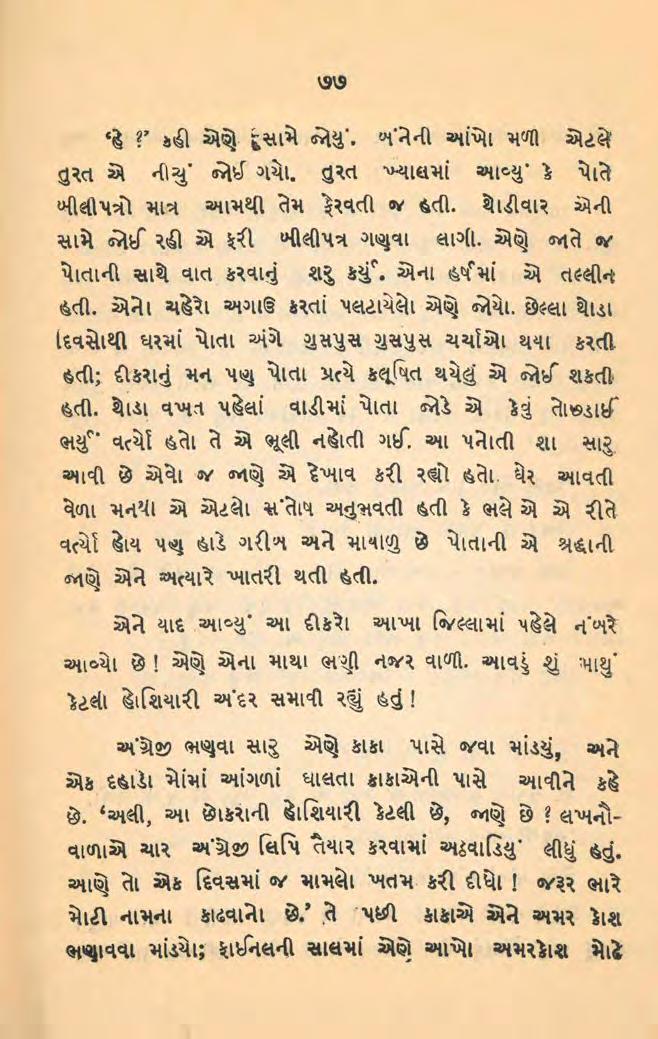 ૭૭
‘હેં ?’ કહી એણે સામે જોયું. બંનેની આંખો મળી એટલે
તુરત એ નીચું જોઈ ગયો. તુરત ખ્યાલમાં આવ્યું કે પોતે
બીલીપત્રો માત્ર આમથી તેમ ફેરવતી જ હતી. થોડીવાર એની
સામે જોઈ રહી એ ફરી બીલીપત્ર ગણવા લાગી. એણે જાતે જ
પોતાની સાથે વાત કરવાનું શરુ કર્યું. એના હર્ષમાં એ તલ્લીન
હતી. એનો ચહેરો અગાઉ કરતાં પલટાયેલો એણે જોયો. છેલ્લા થોડા
દિવસોથી ઘરમાં પોતા અંગે ગુસપુસ ગુસપુસ ચર્ચાઓ થયા કરતી
હતી; દીકરાનું મન પણ પોતા પ્રત્યે કલૂષિત થયેલું એ જોઈ શકતી
હતી. થોડા વખત પહેલાં વાડીમાં પોતા જોડે એ કેવું તોછડાઈ
ભર્યું વર્ત્યો હતો તે એ ભૂલી નહોતી ગઈ. આ પનોતી શા સારુ
આવી છે એવો જ જાણે એ દેખાવ કરી રહ્યો હતો. ઘેર આવતી
વેળા મનથી એ એટલો સંતોષ અનુભવતી હતી કે ભલે એ એ રીતે
વર્ત્યો હોય પણ હાડે ગરીબ અને માયાળુ છે પોતાની એ શ્રદ્ધાની
જાણે એને અત્યારે ખાતરી થતી હતી.
એને યાદ આવ્યું આ દીકરો આખા જિલ્લામાં પહેલે નંબરે
આવ્યો છે ! એણે એના માથા ભણી નજર વાળી. આવડું શું માથું
કેટલી હોશિયારી અંદર સમાવી રહ્યું હતું !
અંગ્રેજી ભણવા સારુ એણે કાકા પાસે જવા માંડયું, અને
એક દહાડો મોંમાં આંગળાં ઘાલતા કાકાએની પાસે આવીને કહે
છે. ‘અલી, આ છોકરાની હોશિયારી કેટલી છે, જાણે છે ? લખનૌ-
વાળાએ ચાર અંગ્રેજી લિપિ તૈયાર કરવામાં અઠવાડિયું લીધું હતું.
આણે તો એક દિવસમાં જ મામલો ખતમ કરી દીધો ! જરૂર ભારે
મોટી નામના કાઢવાનો છે.’ તે પછી કાકાએ એને અમર કોશ
ભણાવવા માંડયો; ફાઈનલની સાલમાં એણે આખો અમરકોશ મોઢે